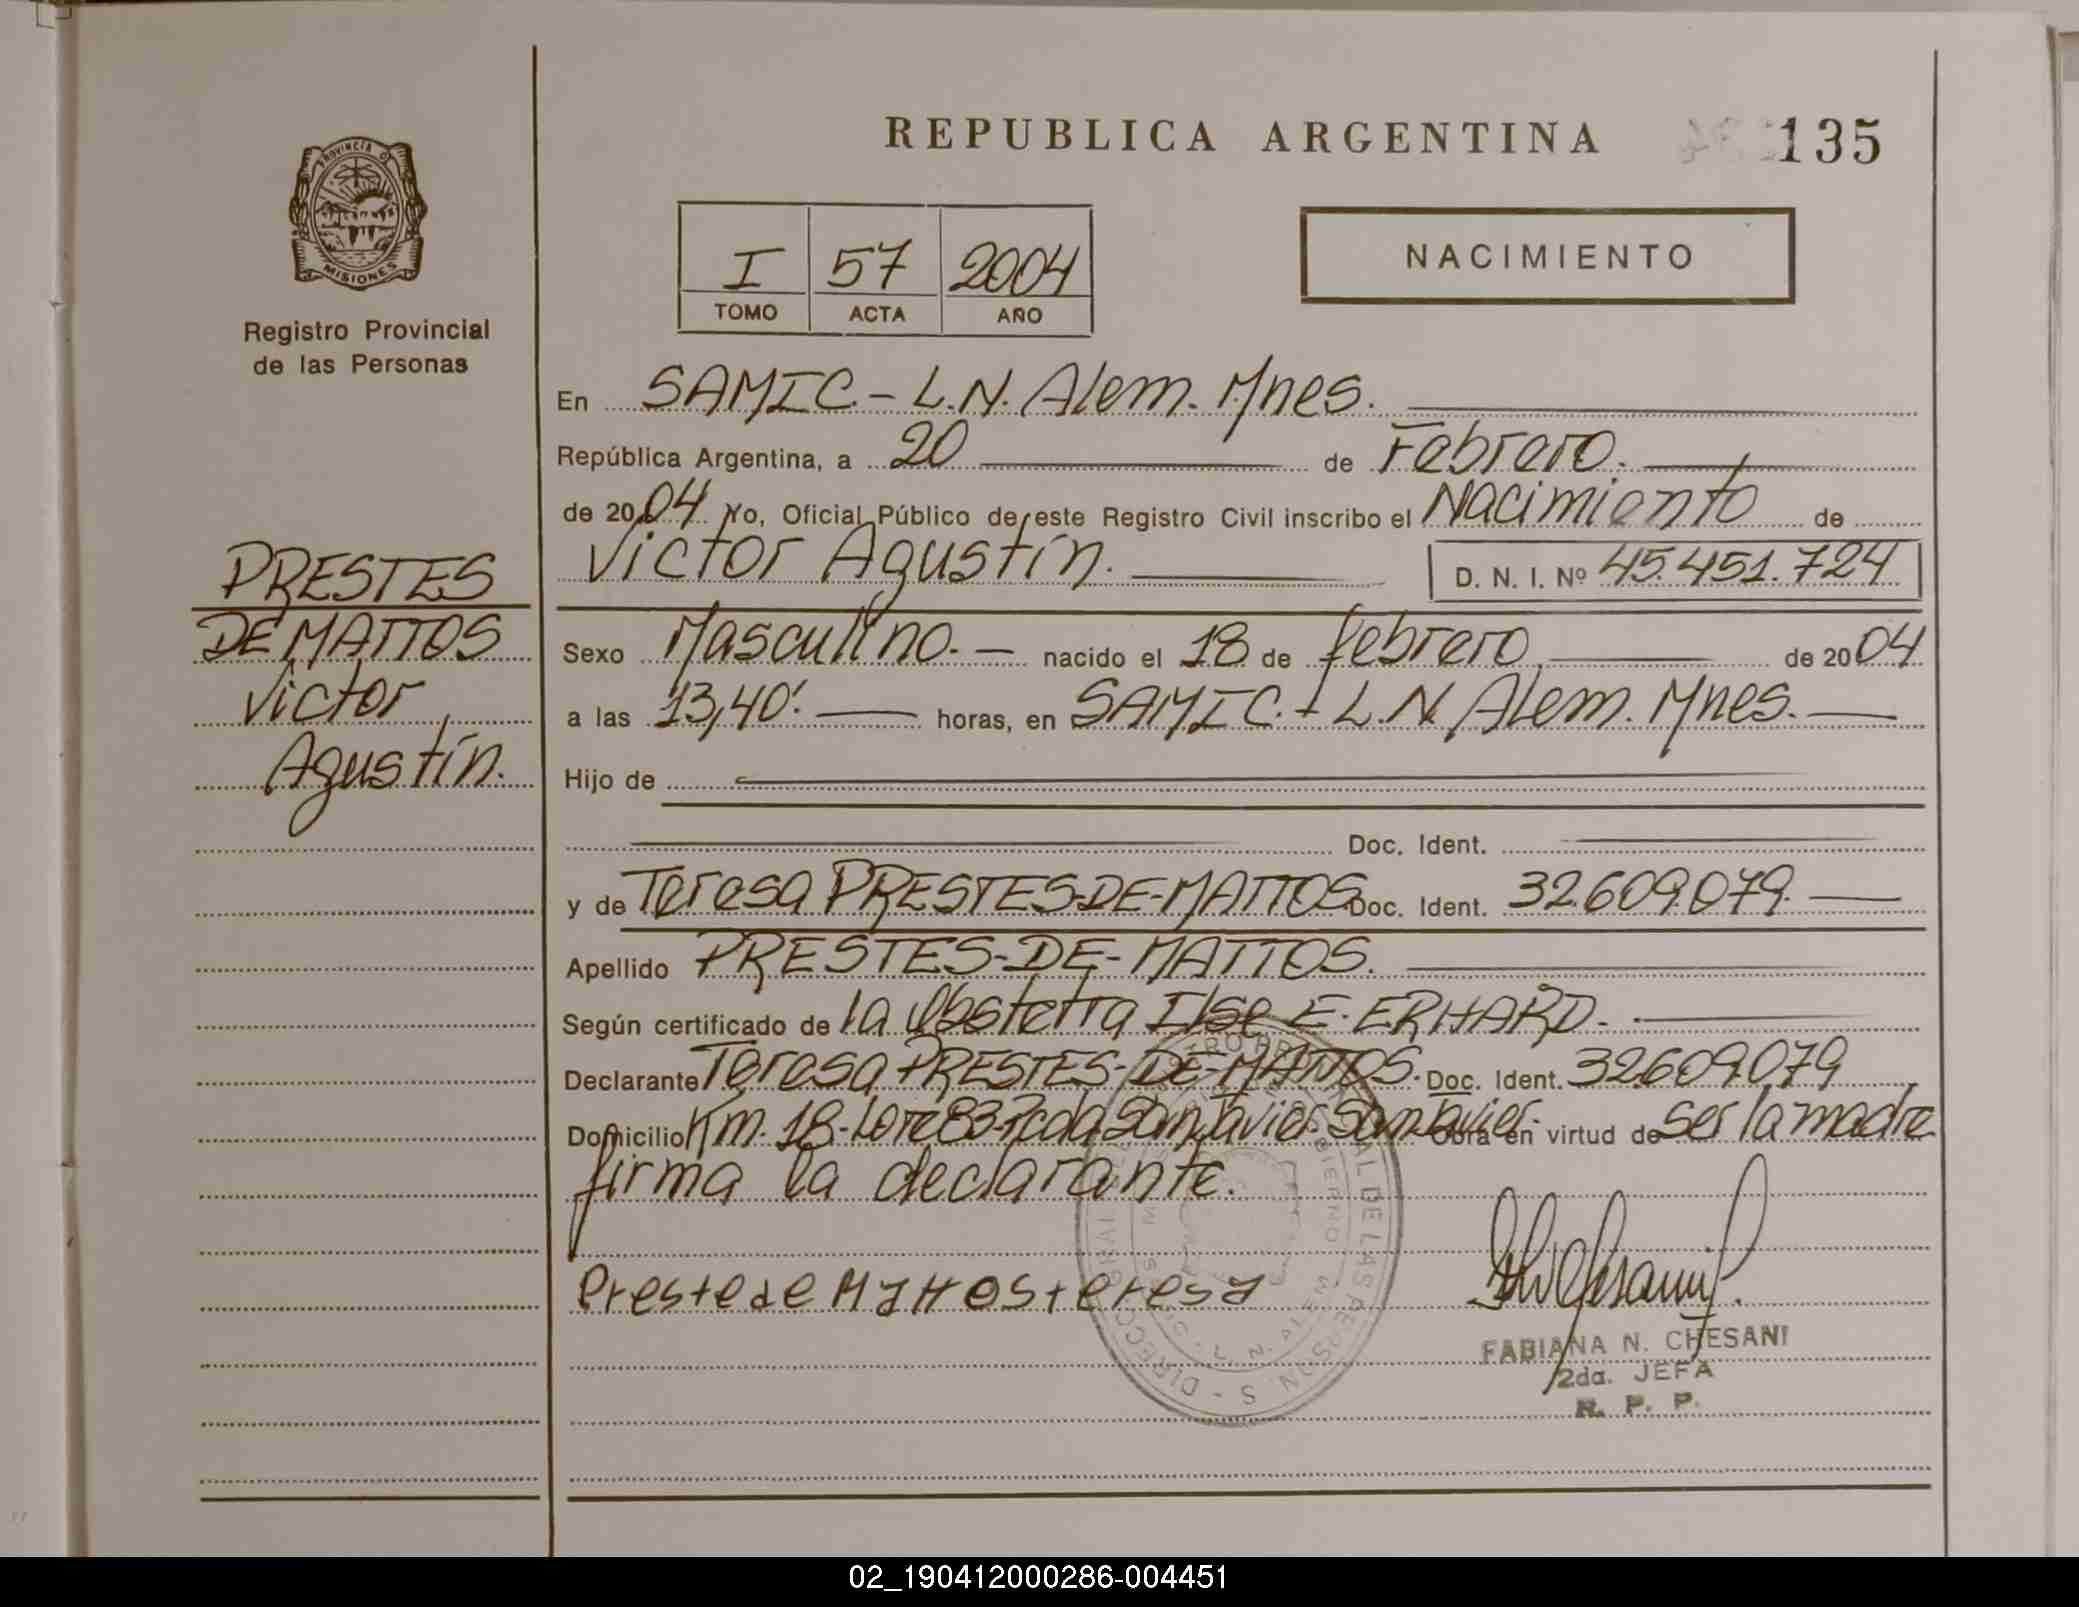 REPUBLICA ARGENTINA
135
PROVINCIA DE
MISIONES
Registro Provincial
de las Personas
I 57 2004
TOMO ACTA AÑO
NACIMIENTO
En SAMIC.- L.N. Alem. Mnes.
República Argentina, a 20 de Febrero.
de 2004 Yo, Oficial Público de este Registro Civil inscribo el Nacimiento de
Victor Agustín. D. N. I. Nº 45.451.724
PRESTES
DE MATTOS
Victor
Agustín.
Sexo Masculino.- nacido el 18 de febrero, de 2004
a las 13,40'. horas, en SAMIC.- L.N. Alem. Mnes.
Hijo de
Doc. Ident.
y de Teresa PRESTES-DE-MATTOS Doc. Ident. 32.609.079.
Apellido PRESTES-DE-MATTOS.
Según certificado de la Obstetra Ilse E. ERHARD.
Declarante Teresa PRESTES-DE-MATTOS. Doc. Ident. 32.609.079
Domicilio Km. 18-Lote 83-Pcda San Javier-San Javier. Obra en virtud de ser la madre
firma la declarante.
Prestede Mattos teresa
FABIANA N. CHESANI
2da. JEFA
R. P. P.
02_190412000286-004451